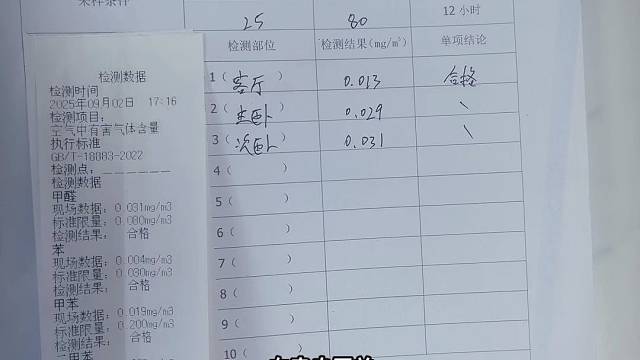 采样条件
25 80 12 小时
检测部位 检测结果(mg/m³) 单项结论
1 (客厅) 0.013 合格
2 (主卧) 0.029 \
3 (次卧) 0.031 \
4 ( )
5 ( )
6 ( )
7 ( )
8 ( )
9 ( )
10 ( )
检测数据
检测时间
2025年09月02日 17:16
检测项目:
空气中有害气体含量
执行标准
GB/T-18883-2022
检测点: ______
检测数据
甲醛
现场数据: 0.031mg/m3
标准限量: 0.080mg/m3
检测结果: 合格
苯
现场数据: 0.004mg/m3
标准限量: 0.030mg/m3
检测结果: 合格
甲苯
现场数据: 0.019mg/m3
标准限量: 0.200mg/m3
检测结果: 合格
二甲苯